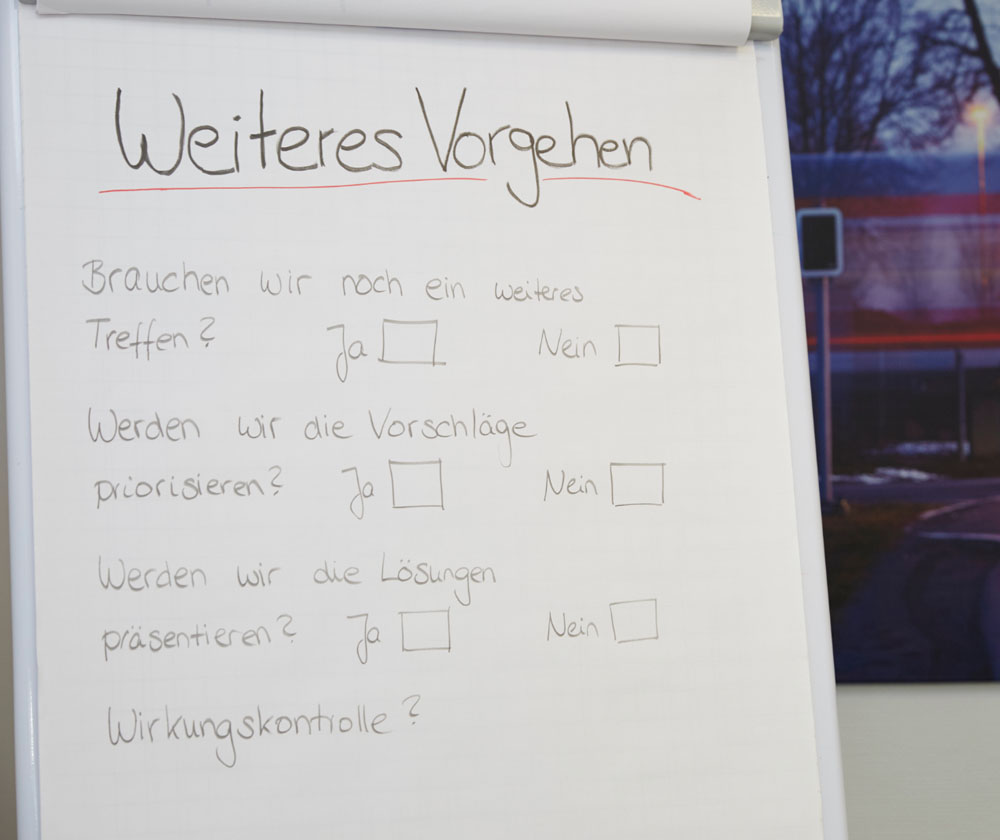 Weiteres Vorgehen
Brauchen wir noch ein weiteres
Treffen? Ja Nein
Werden wir die Vorschläge
priorisieren? Ja Nein
Werden wir die Lösungen
präsentieren? Ja Nein
Wirkungskontrolle?